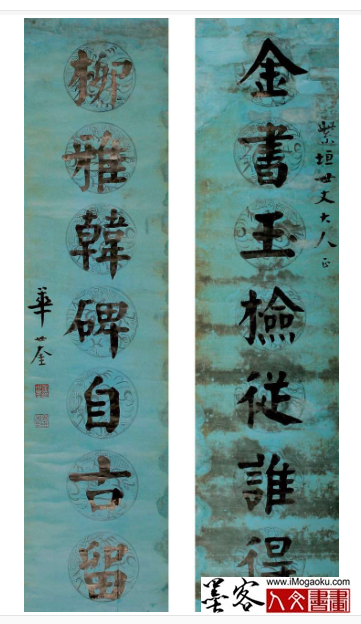 紫垣世丈大人正
金書玉檢從誰得
柳雅韓碑自古留
華世奎
墨客
www.iMogaoku.com
人文書畫